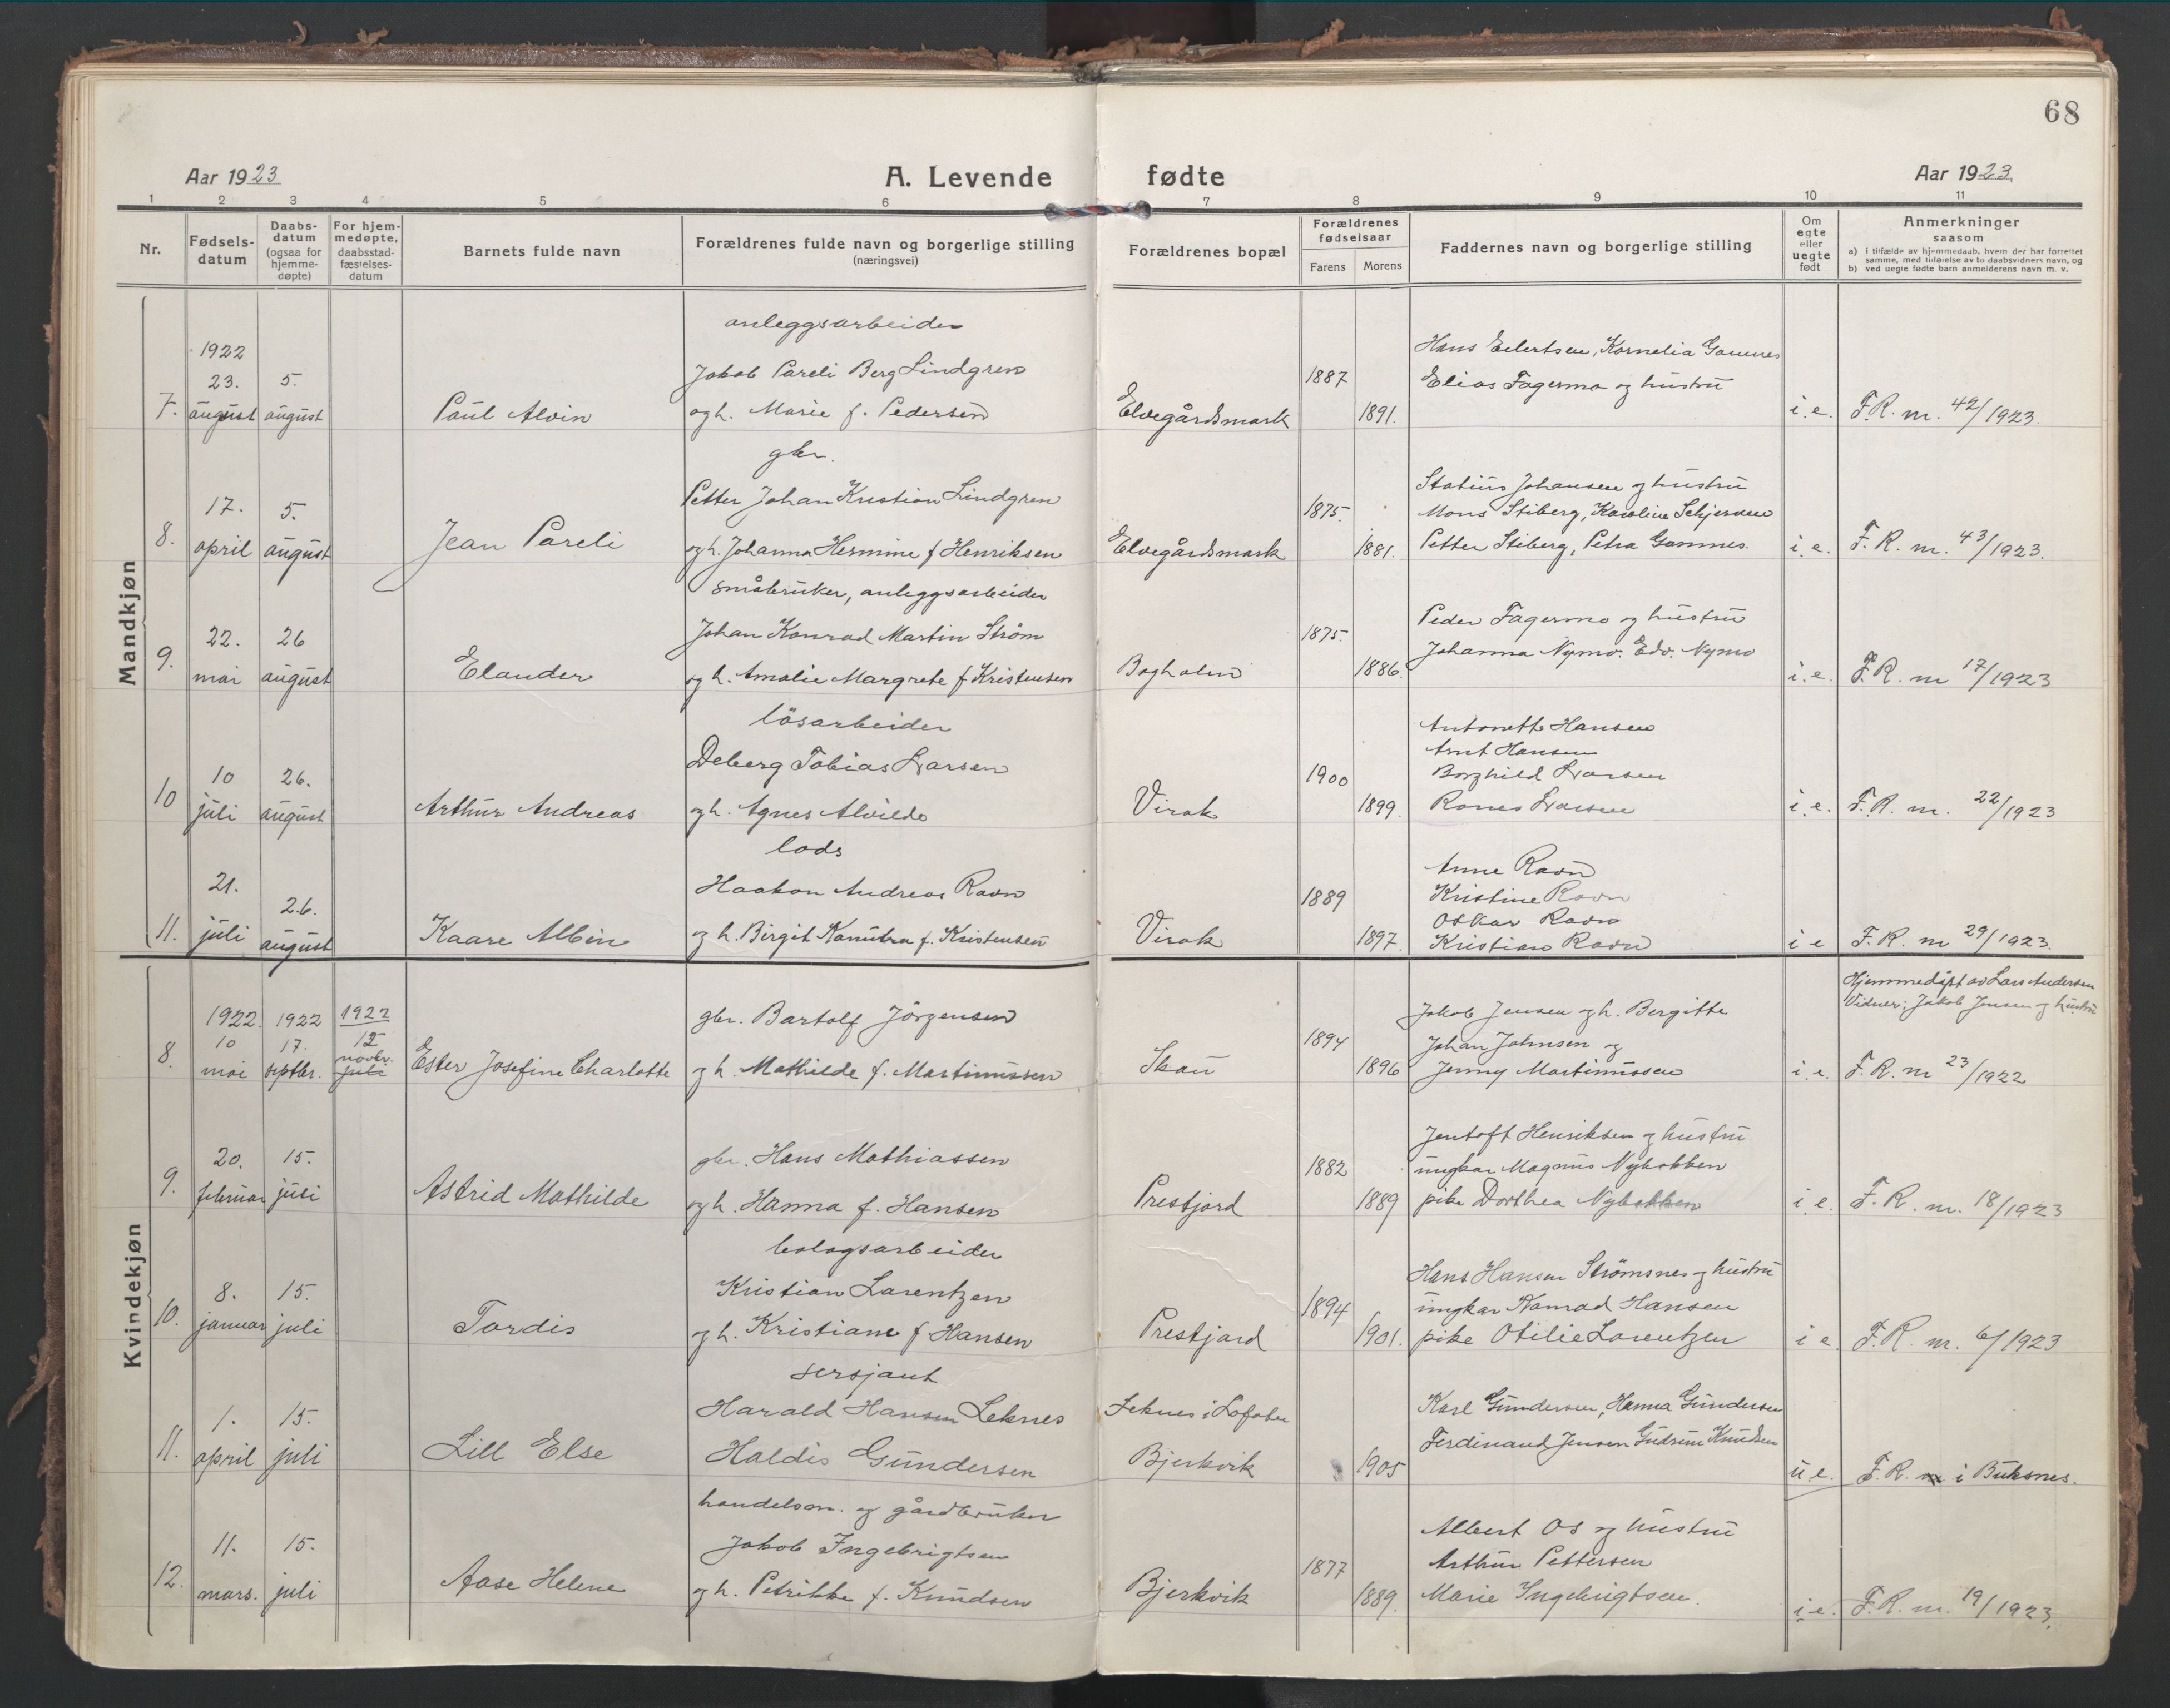 68
Aar 1923
A. Levende fødte
Aar 1923.
1 2 3 4 5 6 7 8 9 10 11
Nr.
Fødsels-datum
Daabs-datum (ogsaa for hjemme-døpte)
For hjem-medøpte, daabsstad-fæstelses-datum
Barnets fulde navn
Forældrenes fulde navn og borgerlige stilling (næringsvei)
Forældrenes bopæl
Forældrenes fødselsaar
Farens Morens
Faddernes navn og borgerlige stilling
Om egte eller uegte født
Anmerkninger saasom
a) i tilfælde av hjemmedaab, hvem der har forrettet samme, med tilføielse av to daabsvidners navn, og
b) ved uegte fødte barn anmelderens navn m. v.
Mandkjøn
7.
1922
23. august
5. august
Paul Alvin
anleggsarbeider
Jakob Pareli Berg Lindgren
og h. Marie f. Pedersen
Elvegårdsmark
1887
1891.
Hans Eilertsen, Kornelia Gamnes
Elias Fagermo og hustru
i.e.
F.R. nr. 42/1923.
8.
17. april
5. august
Jean Pareli
gbr.
Petter Johan Kristian Lindgren
og h. Johanna Hermine f Henriksen
Elvegårdsmark
1875.
1881.
Statius Johansen og hustru
Mons Stiberg, Karoline Schjersven
Petter Stiberg, Petra Gamnes.
i.e.
F.R. nr. 43/1923.
9.
22. mai
26 august
Elander
småbruker, anleggsarbeider
Johan Konrad Martin Strøm
og h. Amalie Margrete f Kristensen
Bogholm
1875.
1886.
Peder Fagermo og hustru
Johanna Nymo. Edv. Nymo
i.e.
F.R. nr 17/1923
10
10 juli
26. august
Arthur Andreas
løsarbeider
Deberg Tobias Larsen
og h. Agnes Alvilde
Virak
1900
1899.
Antonette Hansen
Arnt Hansen
Borghild Larsen
Larsen
i.e.
F.R. nr. 22/1923
11.
21. juli
26. august
Kaare Albin
lods
Haakon Andreas Ravn
og h. Birgit f. Kristensen
Virak
1889
1897.
Anne Ravn
Kristine Ravn
Oskar Ravn
Kristian Ravn
i e
F.R. nr 29/1923.
Kvindekjøn
8.
1922. 10 mai
1922 17. septbr.
1922 12 novbr. juli
Ester Josefine Charlotte
gbr. Bartolf Jörgensen
og h. Mathilde f. Martinussen
Skau
1894
1896
Jakob Jensen og h. Bergitte
Johan Johnsen og
Jenny Martinussen
i.e.
Hjemmedøpt av Lars Andersen
Vidner: Jakob Jensen og hustru
F.R. nr 23/1922
9.
20. februar
15. juli
Astrid Mathilde
gbr. Hans Mathiassen
og h. Hanna f. Hansen
Prestjord
1882
1889
Jentoft Henriksen og hustru
ungkar Magnus Nybakken
pike Dorthea Nybakken
i.e.
F.R. nr. 18/1923
10.
8. januar
15. juli
Tordis
bolagsarbeider
Kristian Larentzen
og h. Kristiane f Hansen
Prestjord
1894
1901.
Hans Hansen Strömsnes og hustru
ungkar Konrad Hansen
pike Otilie Lorentzen
i e.
F.R. nr. 6/1923
11.
1. april
15. juli
Lill Else
sersjant
Harald Hansen Leknes
Haldis Gundersen
Leknes i Lofoten
Bjerkvik
1905
Karl Gundersen, Hanna Gundersen
Ferdinand Jensen Gudrun Knudsen
u.e.
F.R. nr i Buksnes.
12.
11. mars.
15. juli
Aase Helene
handelsm. og gårdbruker
Jakob Ingebrigtsen
og h. Petrikke f. Knudsen
Bjerkvik
1877
1889.
Albert Os og hustru
Arthur Pettersen
Marie Ingebrigtsen.
i.e.
F.R. nr. 19/1923.